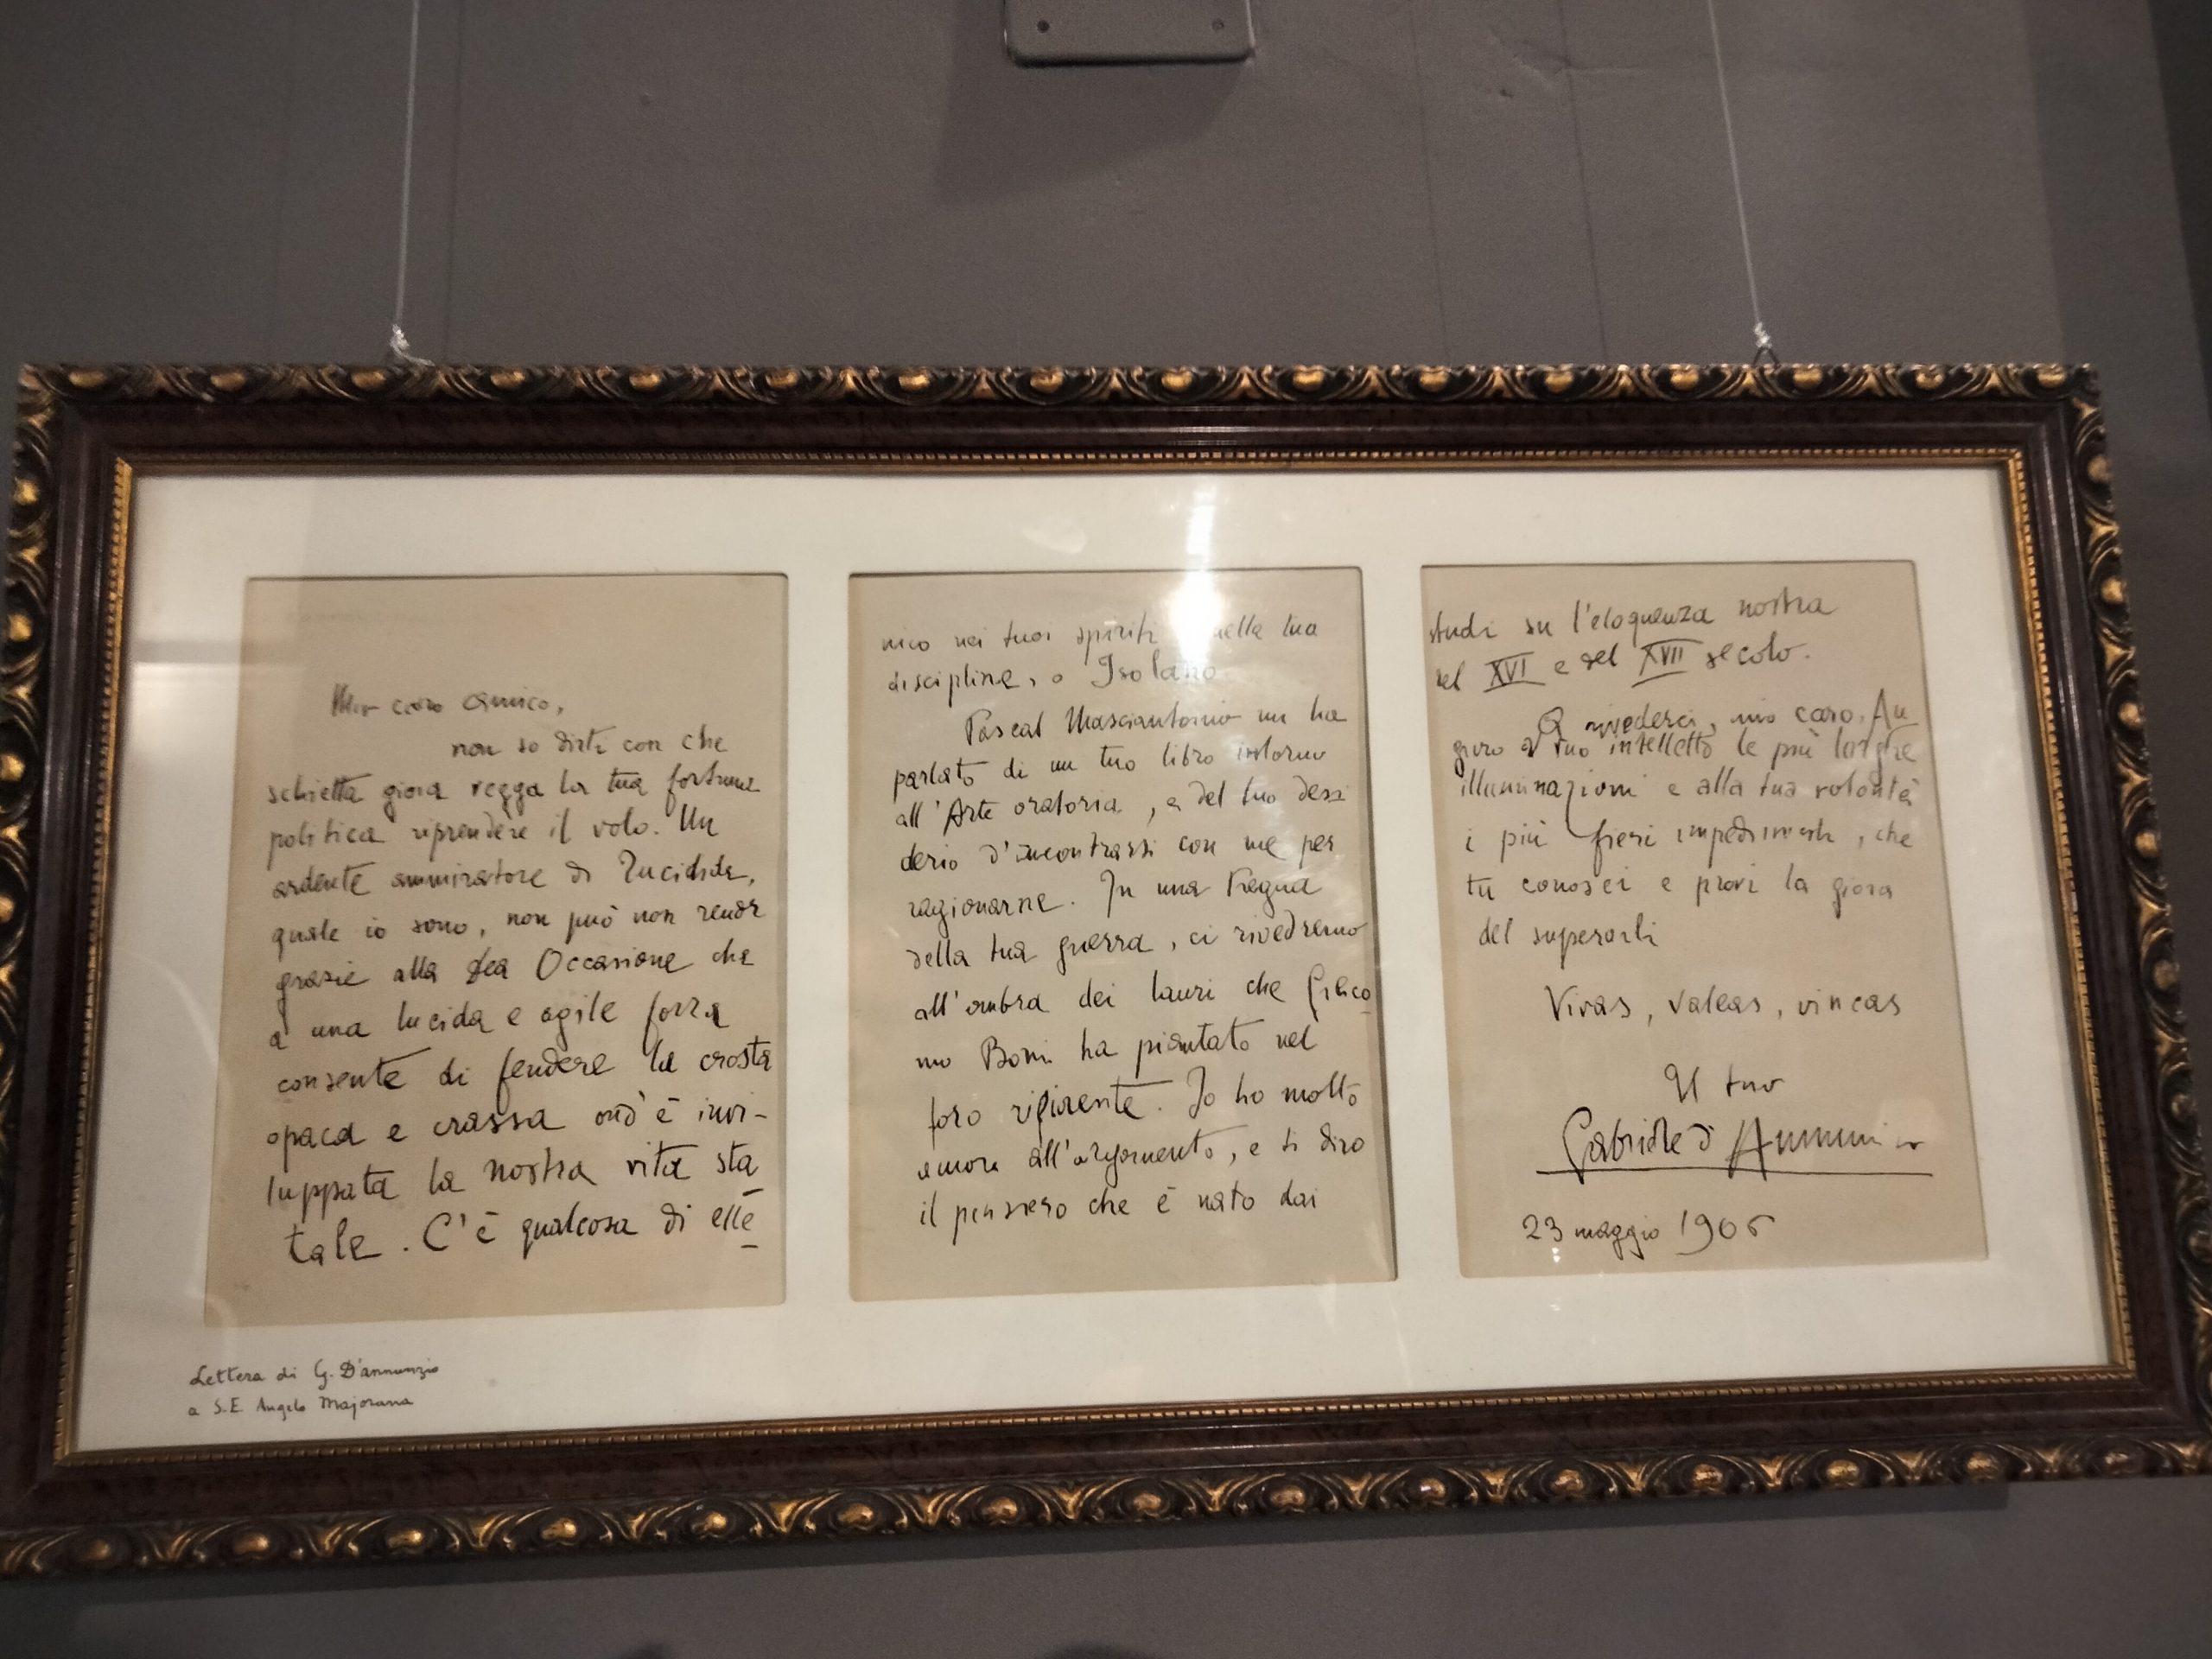 Mio caro Amico,
non so dirti con che
schietta gioia vegga la tua fortuna
politica riprendere il volo. Un
ardente ammiratore di Tucidide,
quale io sono, non può non render
grazie alla dea Occasione che
a una lucida e agile forza
consente di fendere la crosta
opaca e crassa ond'è invi-
luppata la nostra vita sta
tale. C'è qualcosa di elle
nico nei tuoi spiriti nella tua
discipline, o Isolano.
Pascal Masciantonio mi ha
parlato di un tuo libro intorno
all'Arte oratoria, e del tuo desi
derio d'incontrarsi con me per
ragionarne. In una tregua
della tua guerra, ci rivedremo
all'ombra dei lauri che Giaco
mo Boni ha piantato nel
foro rifiorente. Io ho molto
amore all'argomento, e ti dirò
il pensiero che è nato dai
studi su l'eloquenza nostra
del XVI e del XVII secolo.
A rivederci, mio caro. Au
guro al tuo intelletto le più larghe
illuminazioni e alla tua volontà
i più fieri impedimenti, che
tu conosci e provi la gioia
del superarli
Vivas, valeas, vincas
Il tuo
Gabriele d'Annunzio
23 maggio 1906
Lettera di G. D'annunzio
a S.E. Angelo Majorana